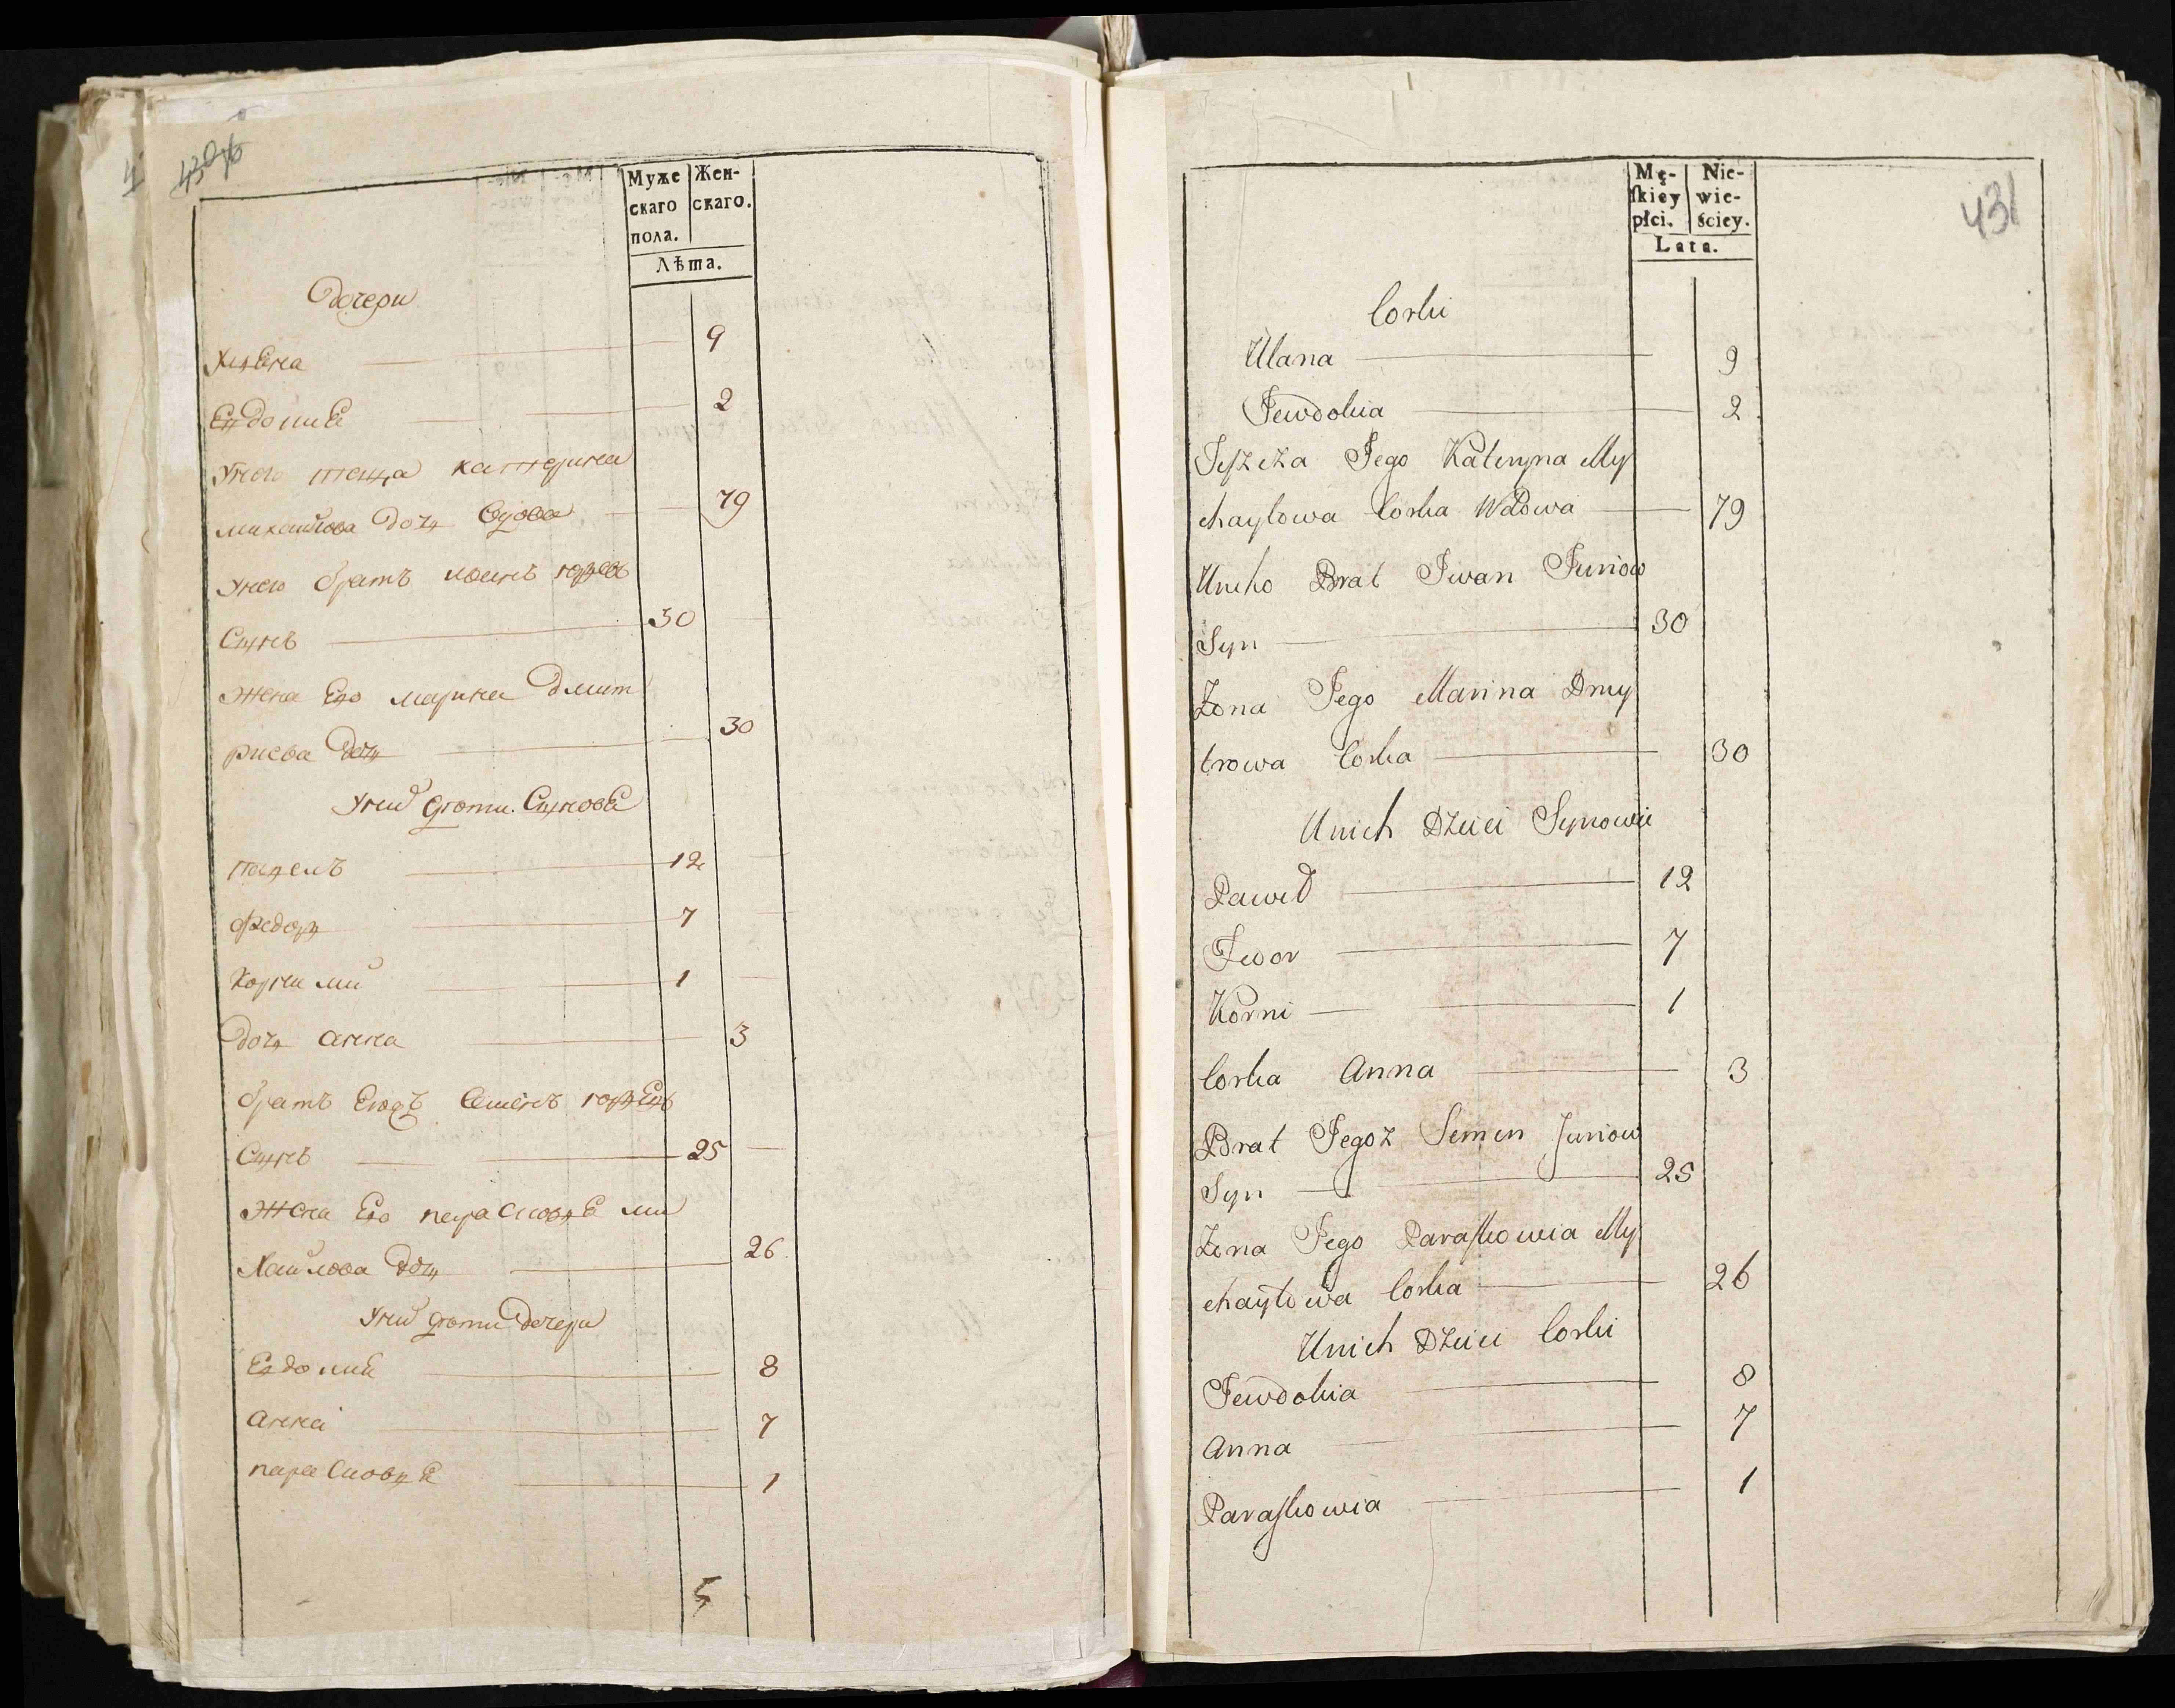 430об
Муже Жен-
скаго скаго.
пола.
Лѣта.
Дочери
9
Евдокия 2
Унего теща катерина
михайлова дочь вдова 79
Унего братъ иванъ юрьевъ
Сынъ 30
жена Его марина дмит
риева дочь 30
Уних дѣти Сыновя
павелъ 12
федоръ 7
Корнилий 1
дочь анна 3
братъ Егожъ Семенъ юрьевъ
Сынъ 25
жена Его парасковья ми
хайлова дочь 26
Уних дѣти дочери
Евдокия 8
анна 7
парасковья 1
5
431
Mę- Nie-
ſkiey wie-
płci. ściey.
Lata.
Corki
Ulana 9
Jewdokia 2
Teszcza Jego Kateryna My
chayłowa Corka Wdowa 79
Uneho Brat Iwan Juriow
Syn 30
Zona Jego Marina Dmy
trowa Corka 30
Unich Dzieci Synowie
Paweł 12
Fedor 7
Korni 1
Corka Anna 3
Brat Jegoz Semen Juriow
Syn 25
Zona Jego Paraskowia My
chayłowa Corka 26
Unich Dzieci Corki
Jewdokia 8
Anna 7
Paraskowia 1